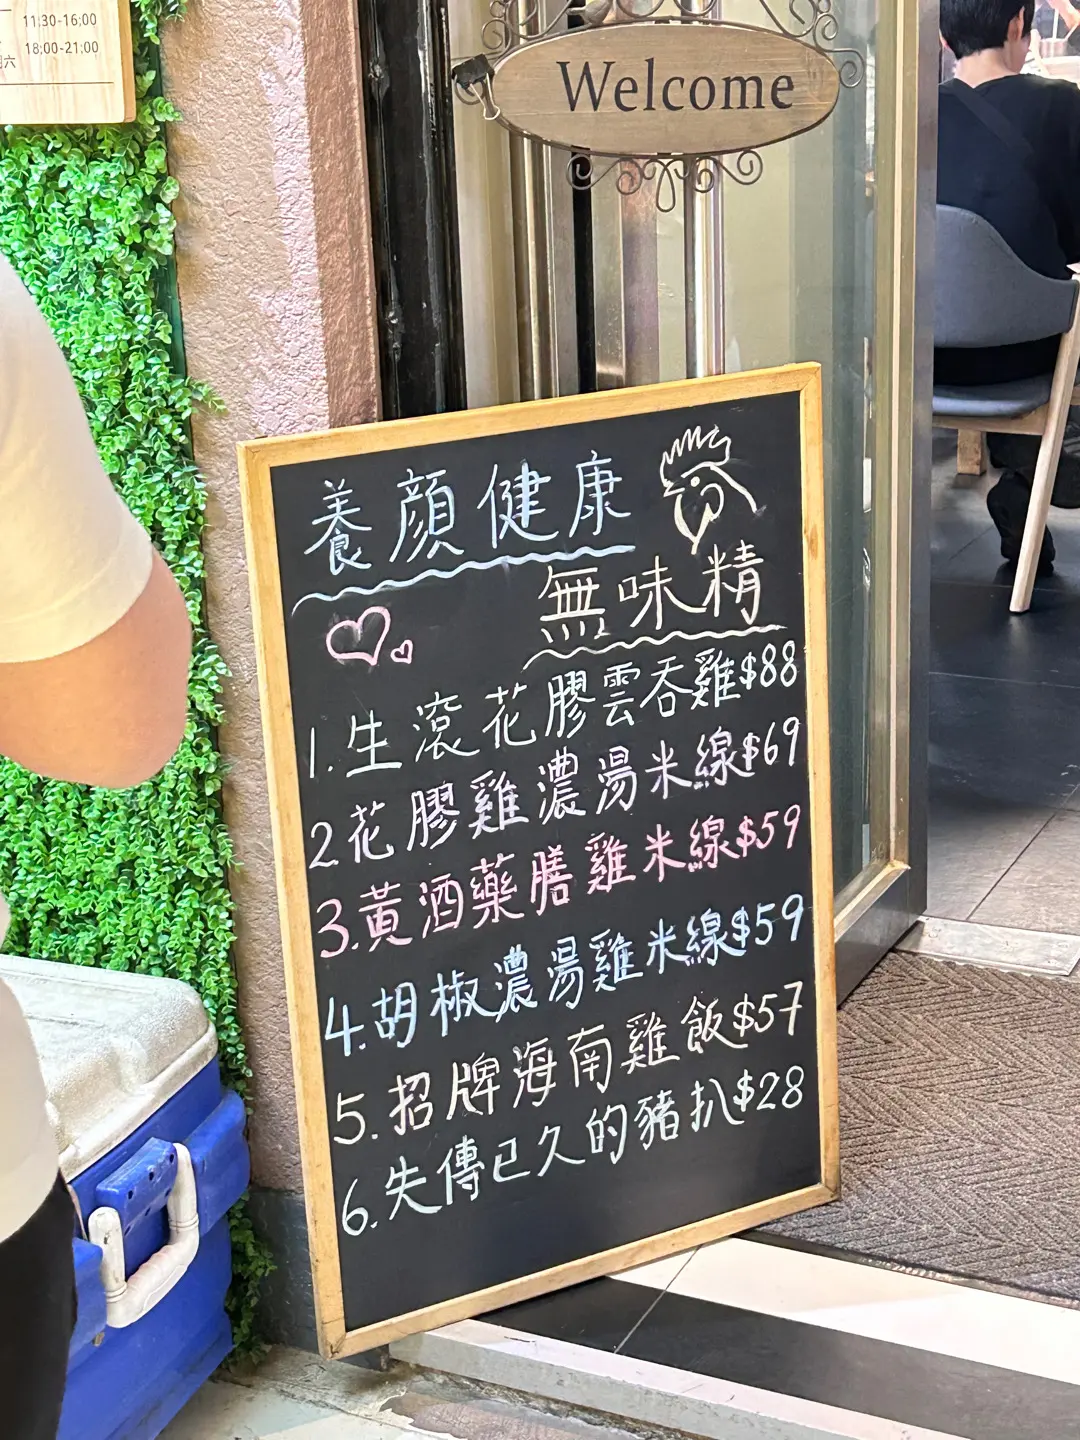 11:30-16:00
18:00-21:00
六
Welcome
養顏健康
無味精
1.生滾花膠雲吞雞$88
2花膠雞濃湯米線$69
3.黃酒藥膳雞米線$59
4.胡椒濃湯雞米線$59
5.招牌海南雞飯$57
6.失傳已久的豬扒$28